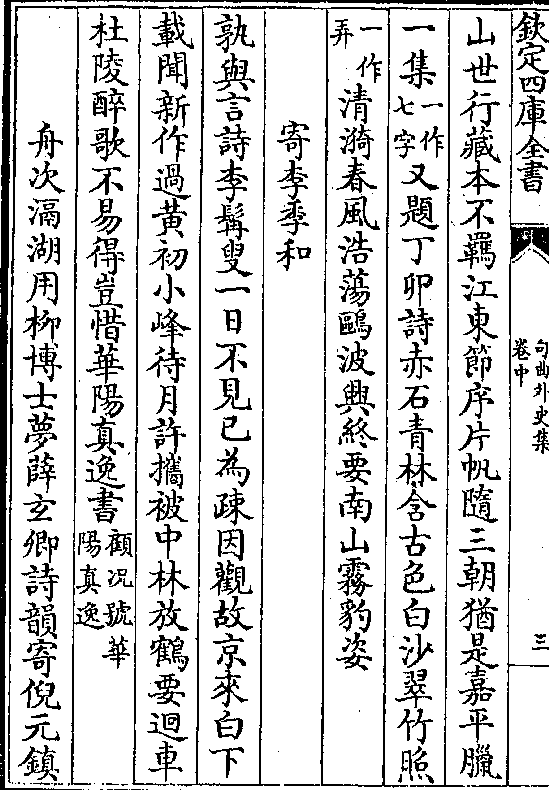 欽定四庫全書
句曲外史集
卷中
三
山世行藏本不羈江東節序片帆隨三朝猶是嘉平臘
一集一作七字又題丁卯詩赤石青林含古色白沙翠竹照
一作弄清漪春風浩蕩鷗波興終要南山霧豹姿
寄李季和
孰與言詩李髯叟一日不見已為疎因觀故京來白下
載聞新作過黃初小峰待月許攜被中林放鶴要迴車
杜陵醉歌不易得豈惜華陽真逸書顧況號華陽真逸
舟次滆湖用柳博士夢薛玄卿詩韻寄倪元鎮